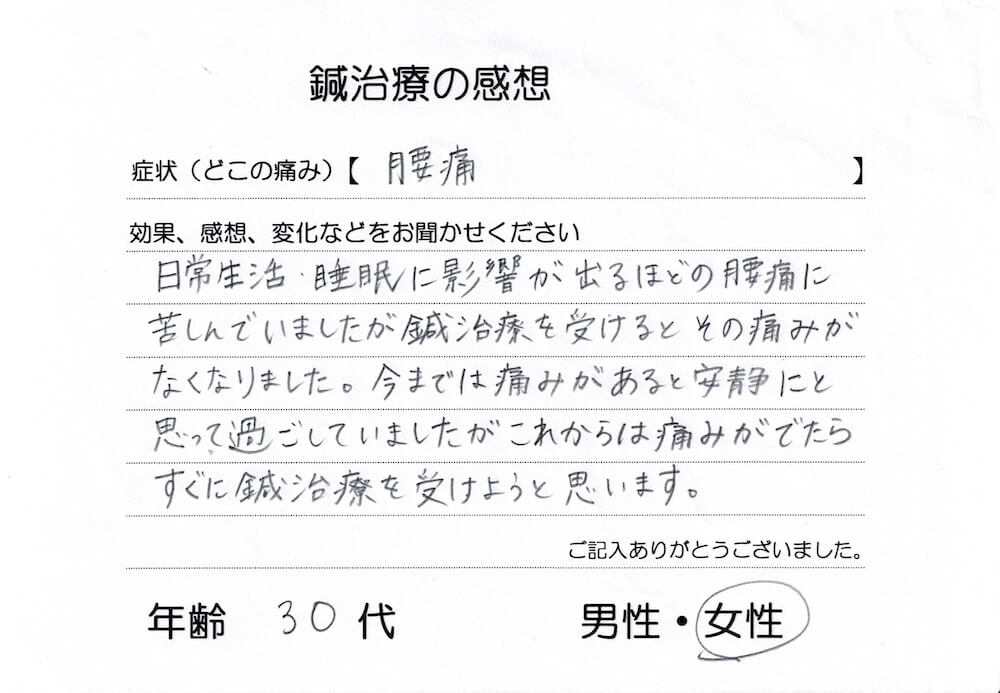 鍼治療の感想
症状（どこの痛み）【 腰痛 】
効果、感想、変化などをお聞かせください
日常生活・睡眠に影響が出るほどの腰痛に
苦しんでいましたが鍼治療を受けるとその痛みが
なくなりました。今までは痛みがあると安静にと
思って過ごしていましたがこれからは痛みがでたら
すぐに鍼治療を受けようと思います。
ご記入ありがとうございました。
年齢 30代 男性・女性